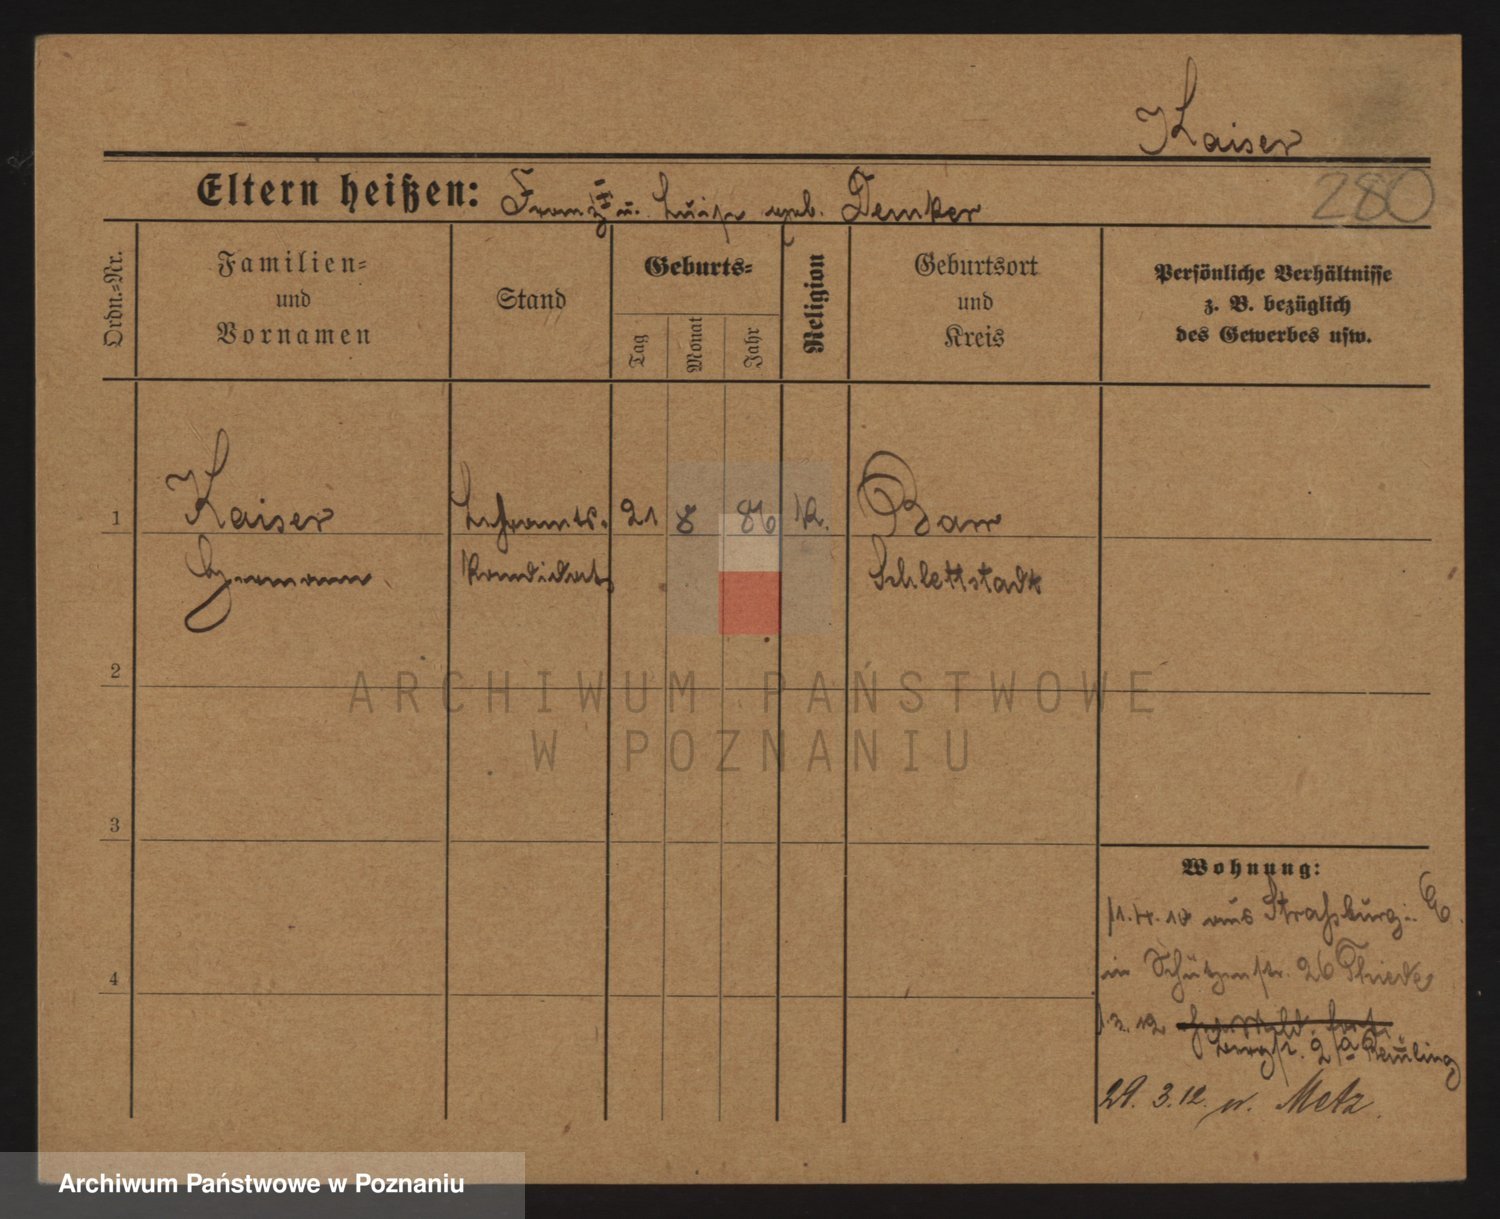 Kaiser
280
Eltern heißen: Franz u. Luise geb. Demker
Ordn.=Nr.
Familien=
und
Vornamen
Stand
Geburts=
Tag
Monat
Jahr
Religion
Geburtsort
und
Kreis
Persönliche Verhältnisse
z. B. bezüglich
des Gewerbes usw.
1 Kaiser Lehramts- 21 8 86 K. Barr
Hermann Kandidat Schlettstadt
2
ARCHIWUM PAŃSTWOWE
W POZNANIU
3
Wohnung:
11.4.10 aus Straßburg i. E.
in Schützenstr. 26 Thiede
4
1.3.12
Bergstr. 2
29. 3.12. n. Metz.
Archiwum Państwowe w Poznaniu